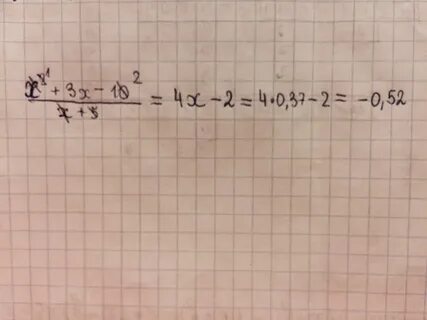 (x² + 3x − 10)/(x + 5) = 4x − 2 = 4·0,37 − 2 = −0,52
1 2